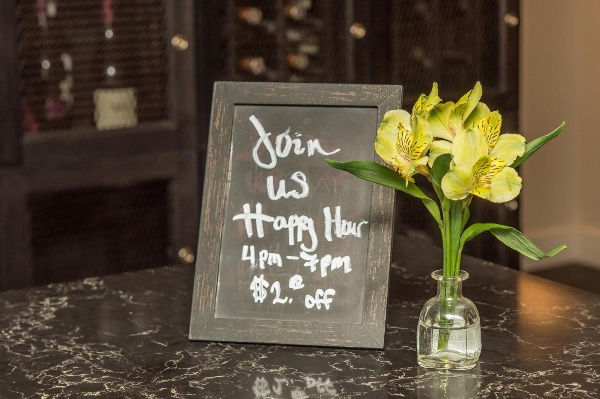 Join
us
Happy Hour
4pm-7pm
$2.⁰⁰ off